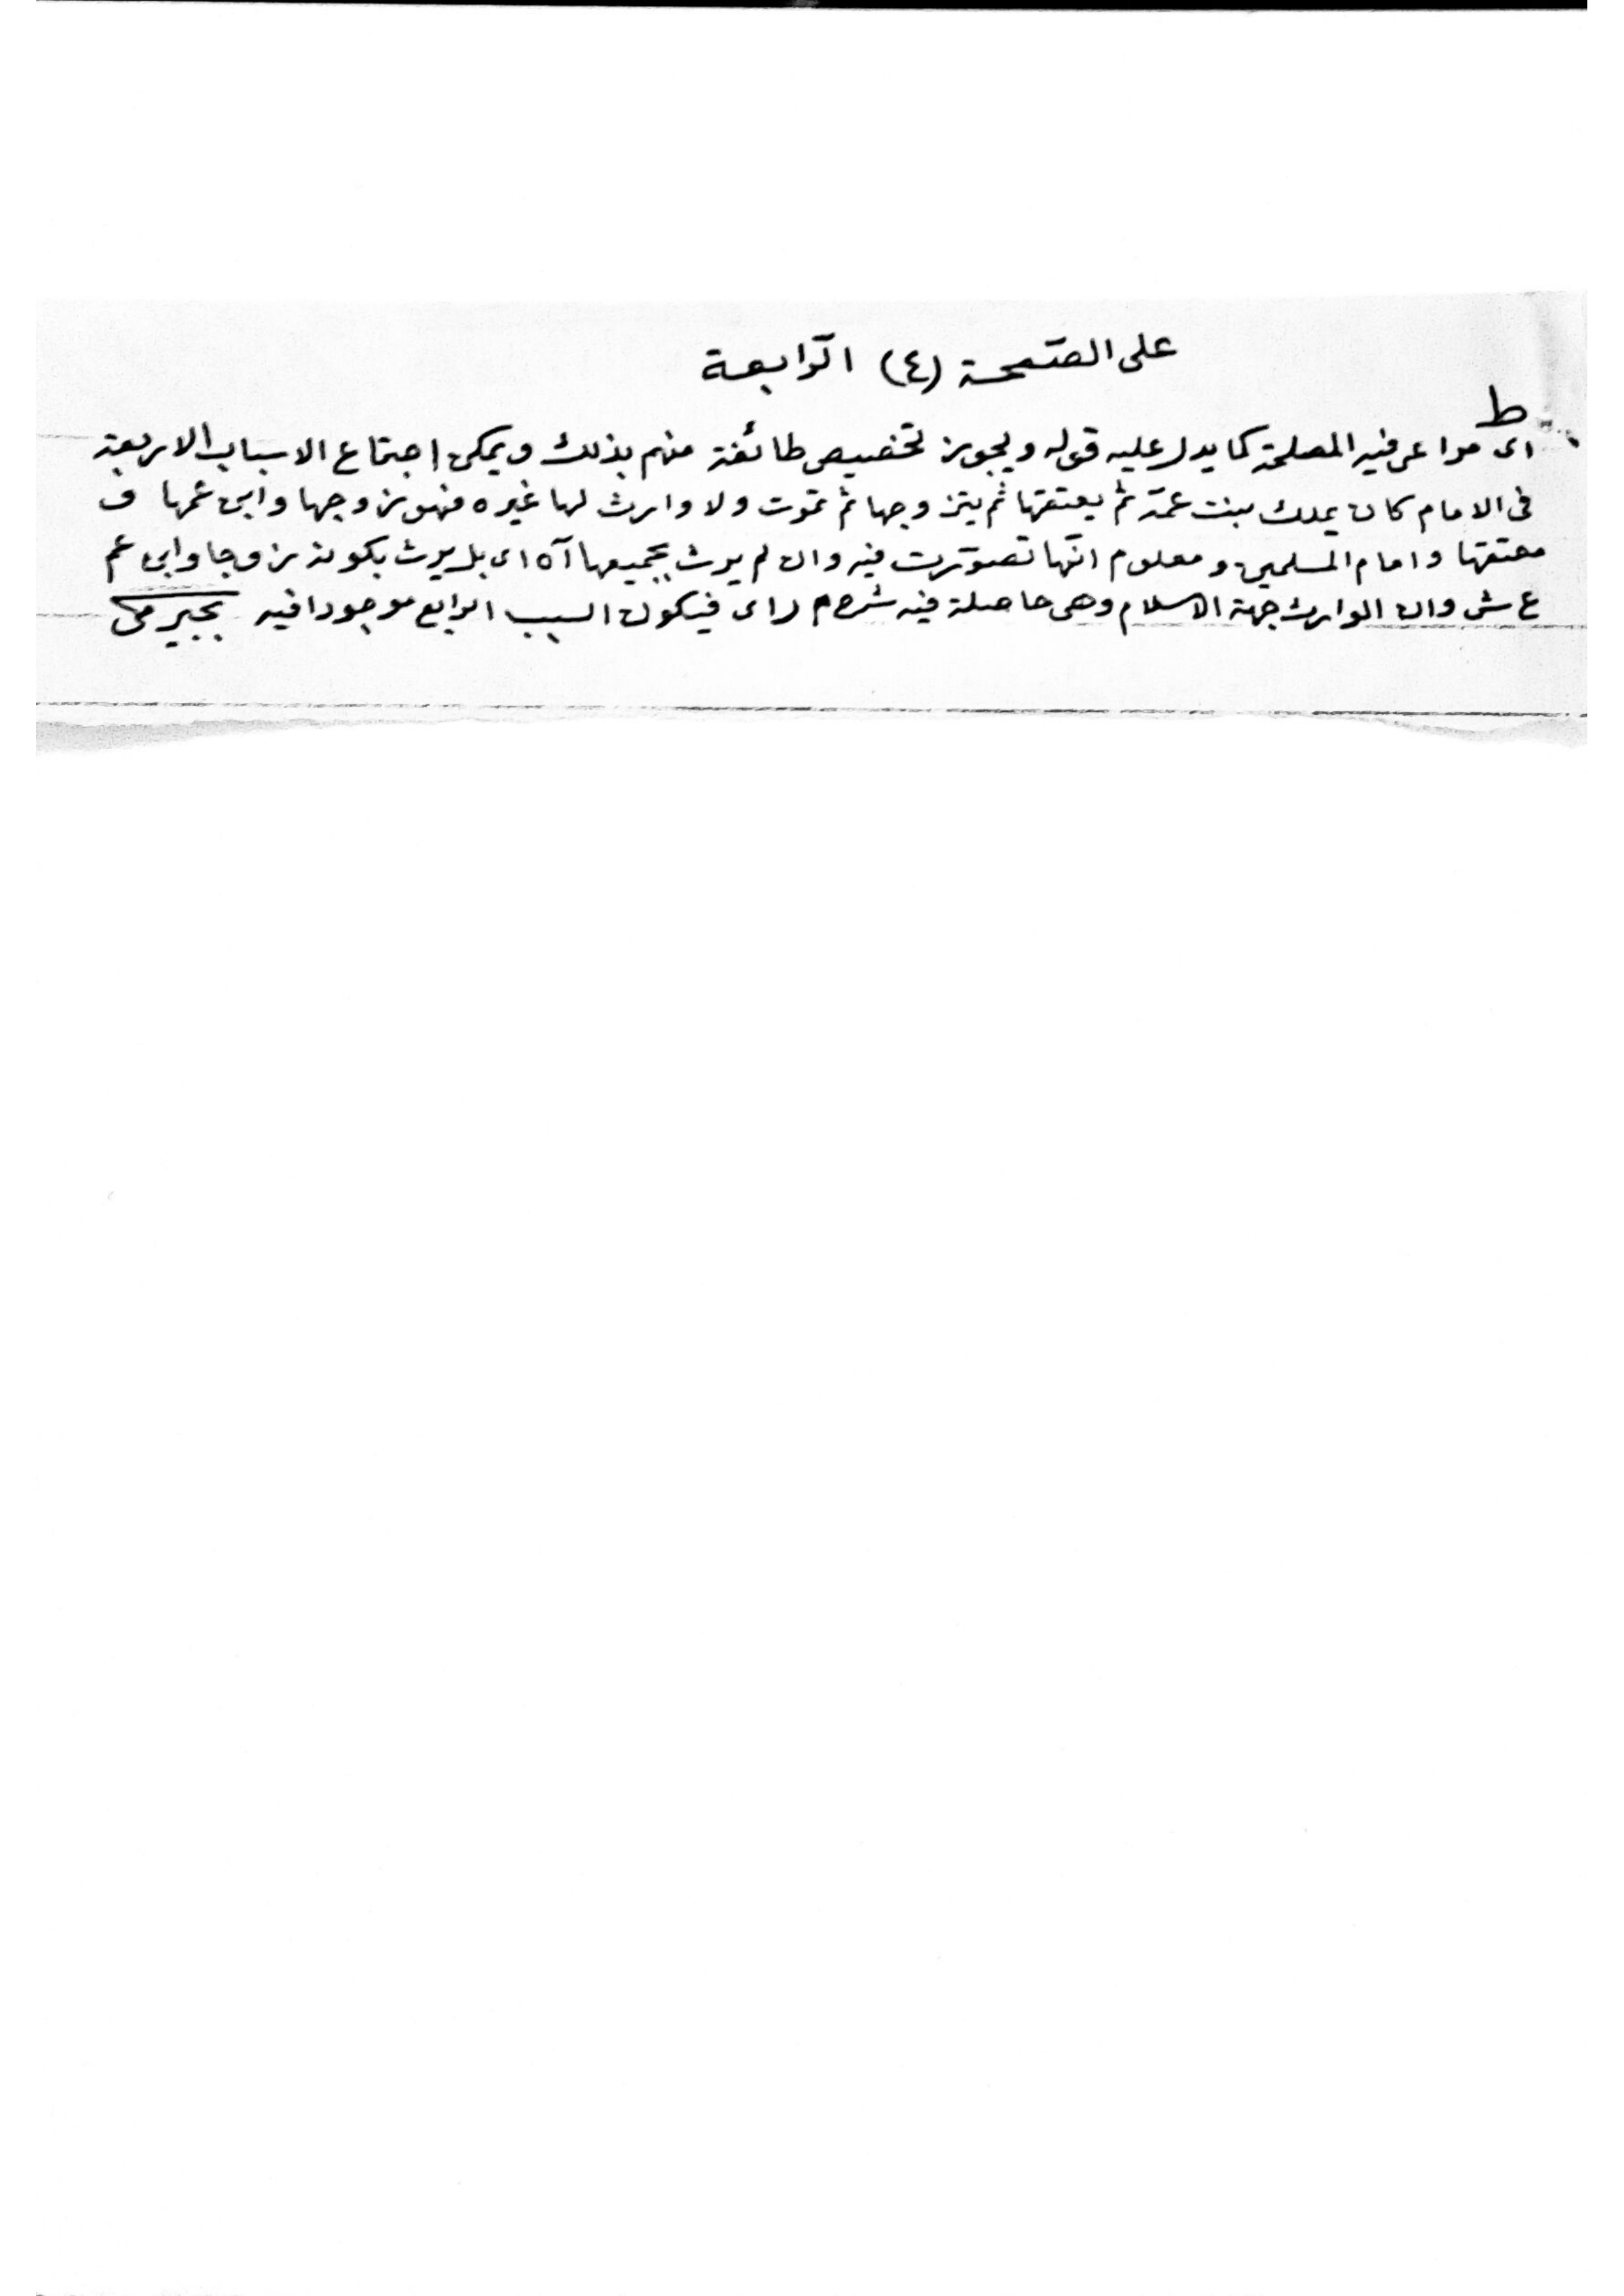 على الصّحيحة (٤) الرّابعة
ط
اى مراعى فيه المصلحة كما يدل عليه قوله ويجوز تخصيص طائفة منهم بذلك ويمكن اجتماع الاسباب الاربعة
فى الامام كان يملك بنت عمّه ثم يعتقها ثم يتزوجها ثم تموت ولا وارث لها غيره فهو زوجها وابن عمها و
معتقها وامام المسلمين ومعلوم انّها تصوّرت فيه وان لم يرث بجميعها آه اى بل يرث بكونه زوجا وابن عم
ع ش وان الوارث جهة الاسلام وهى حاصلة فيه شرح م ر اى فيكون السبب الرابع موجودا فيه بجيرمى